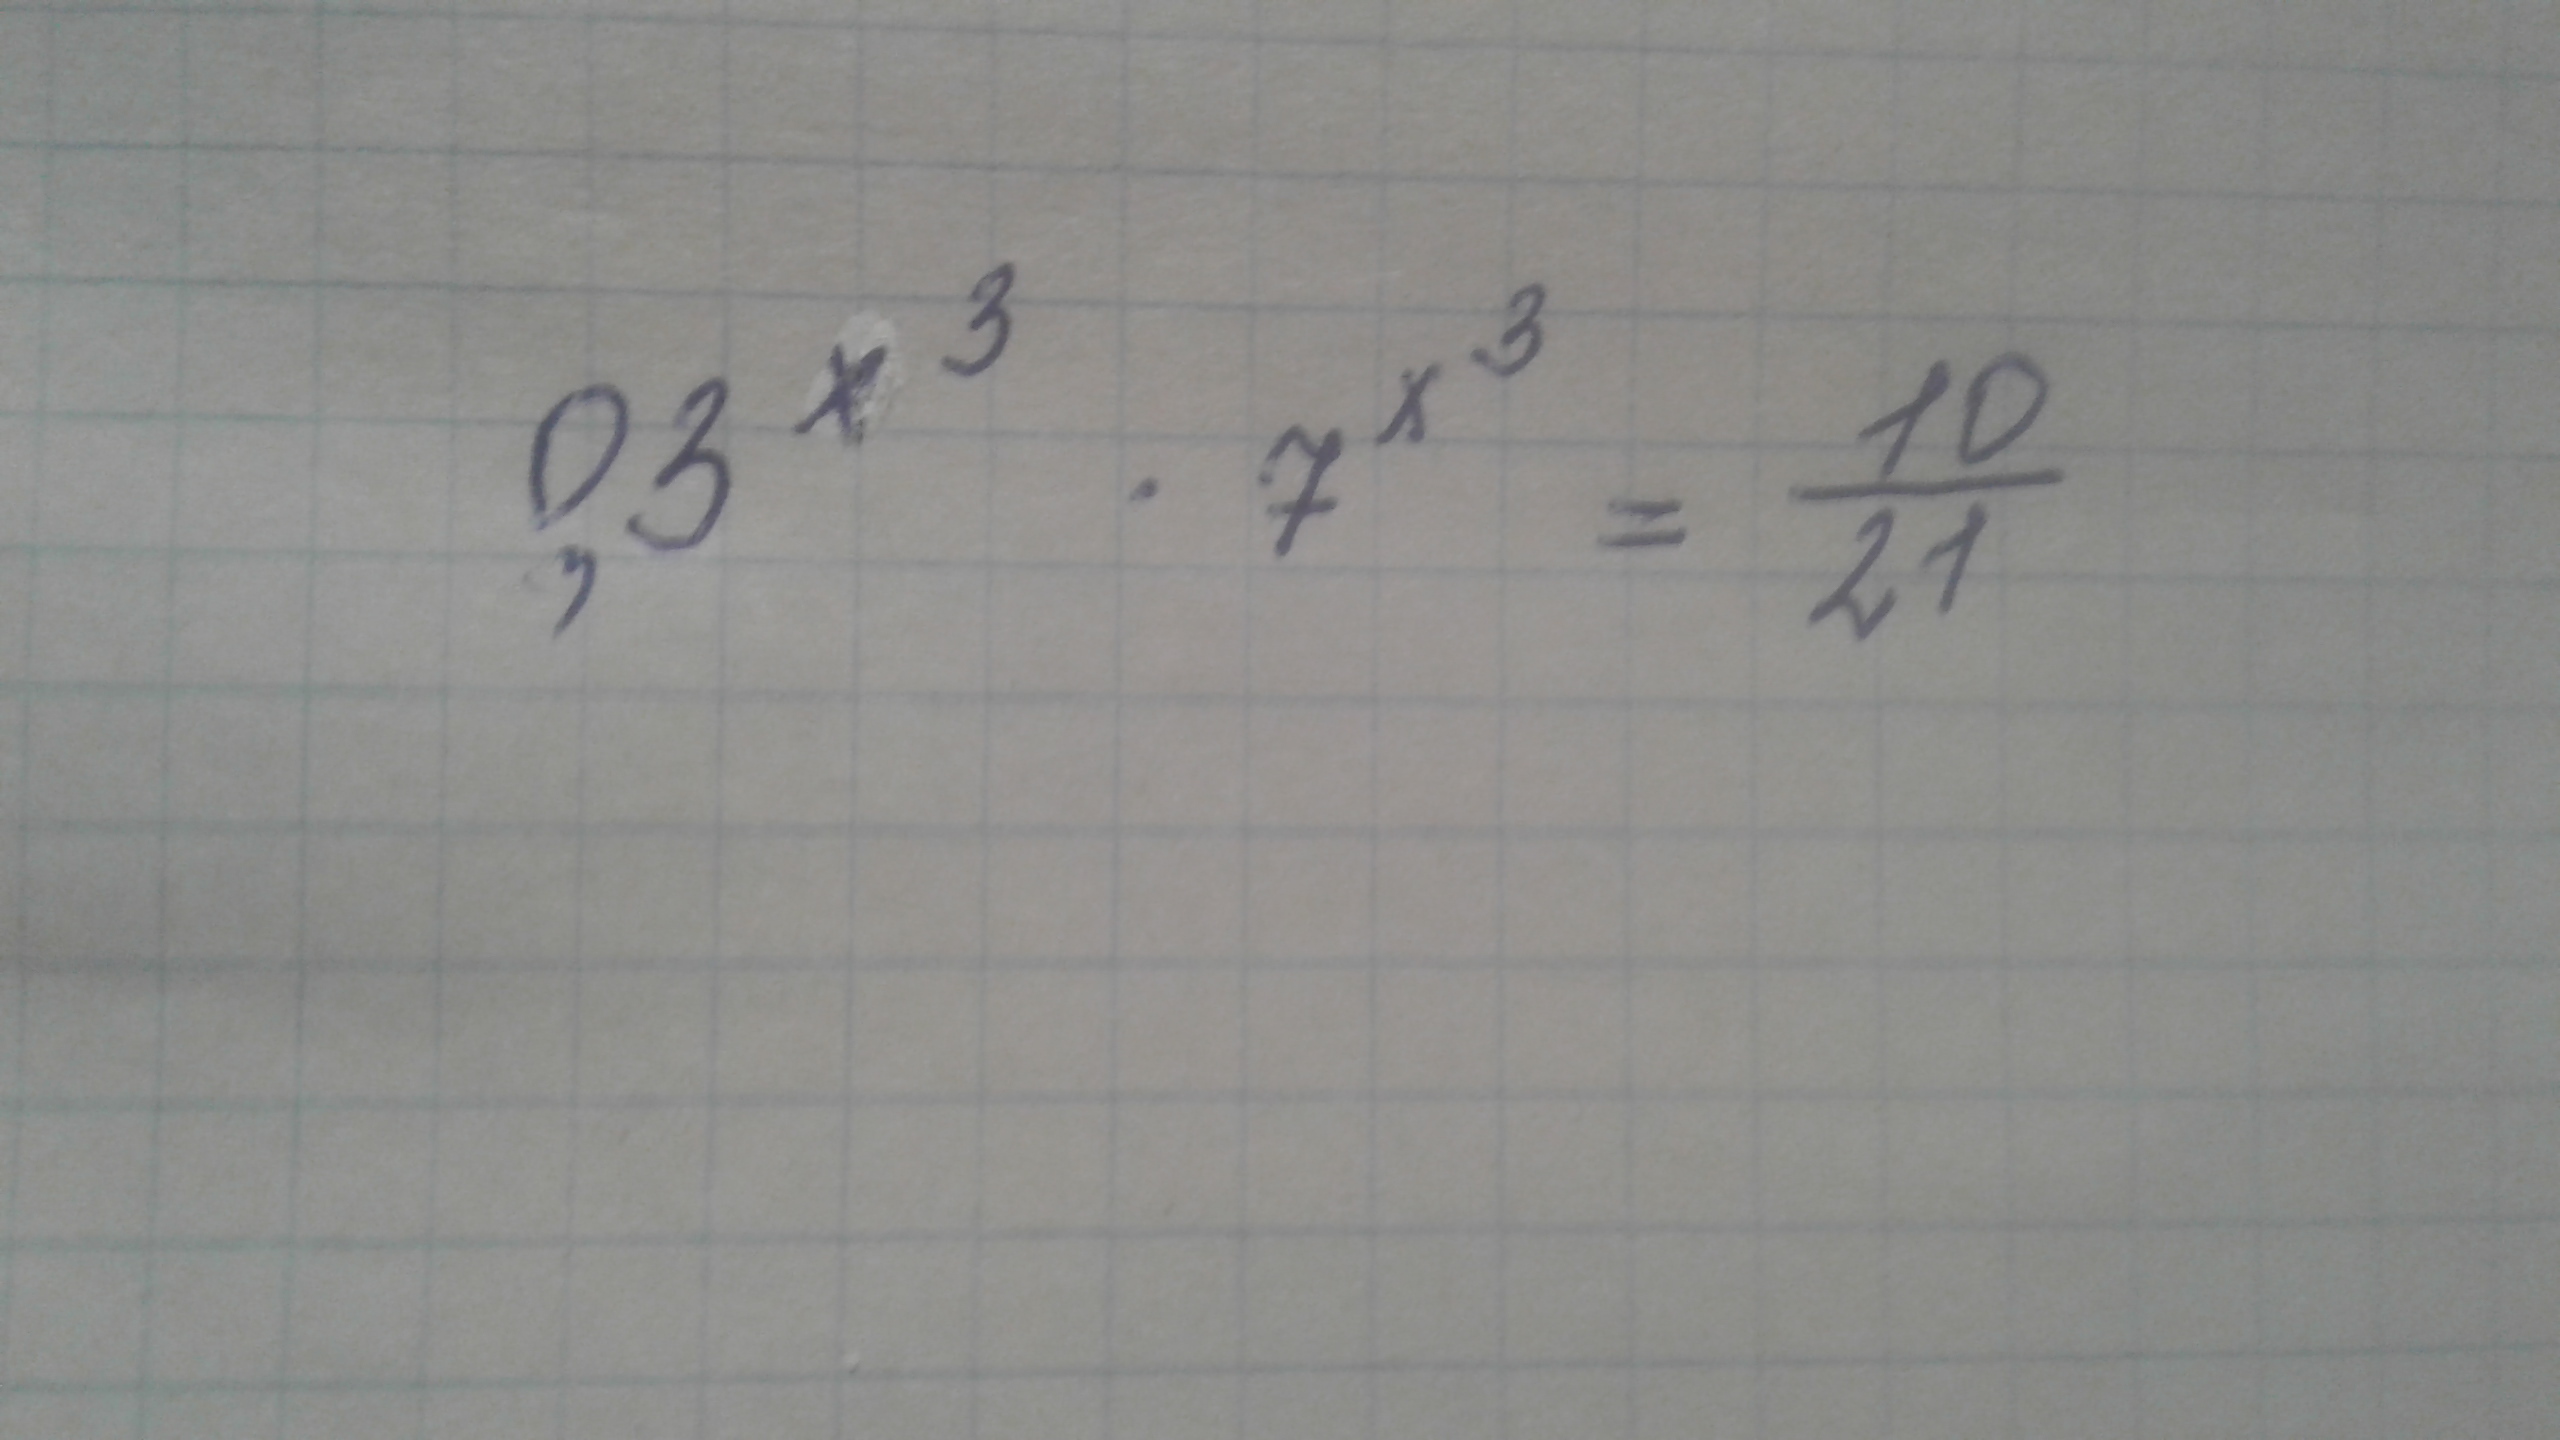 0,3^x^3 · 7^x^3 = 10/21